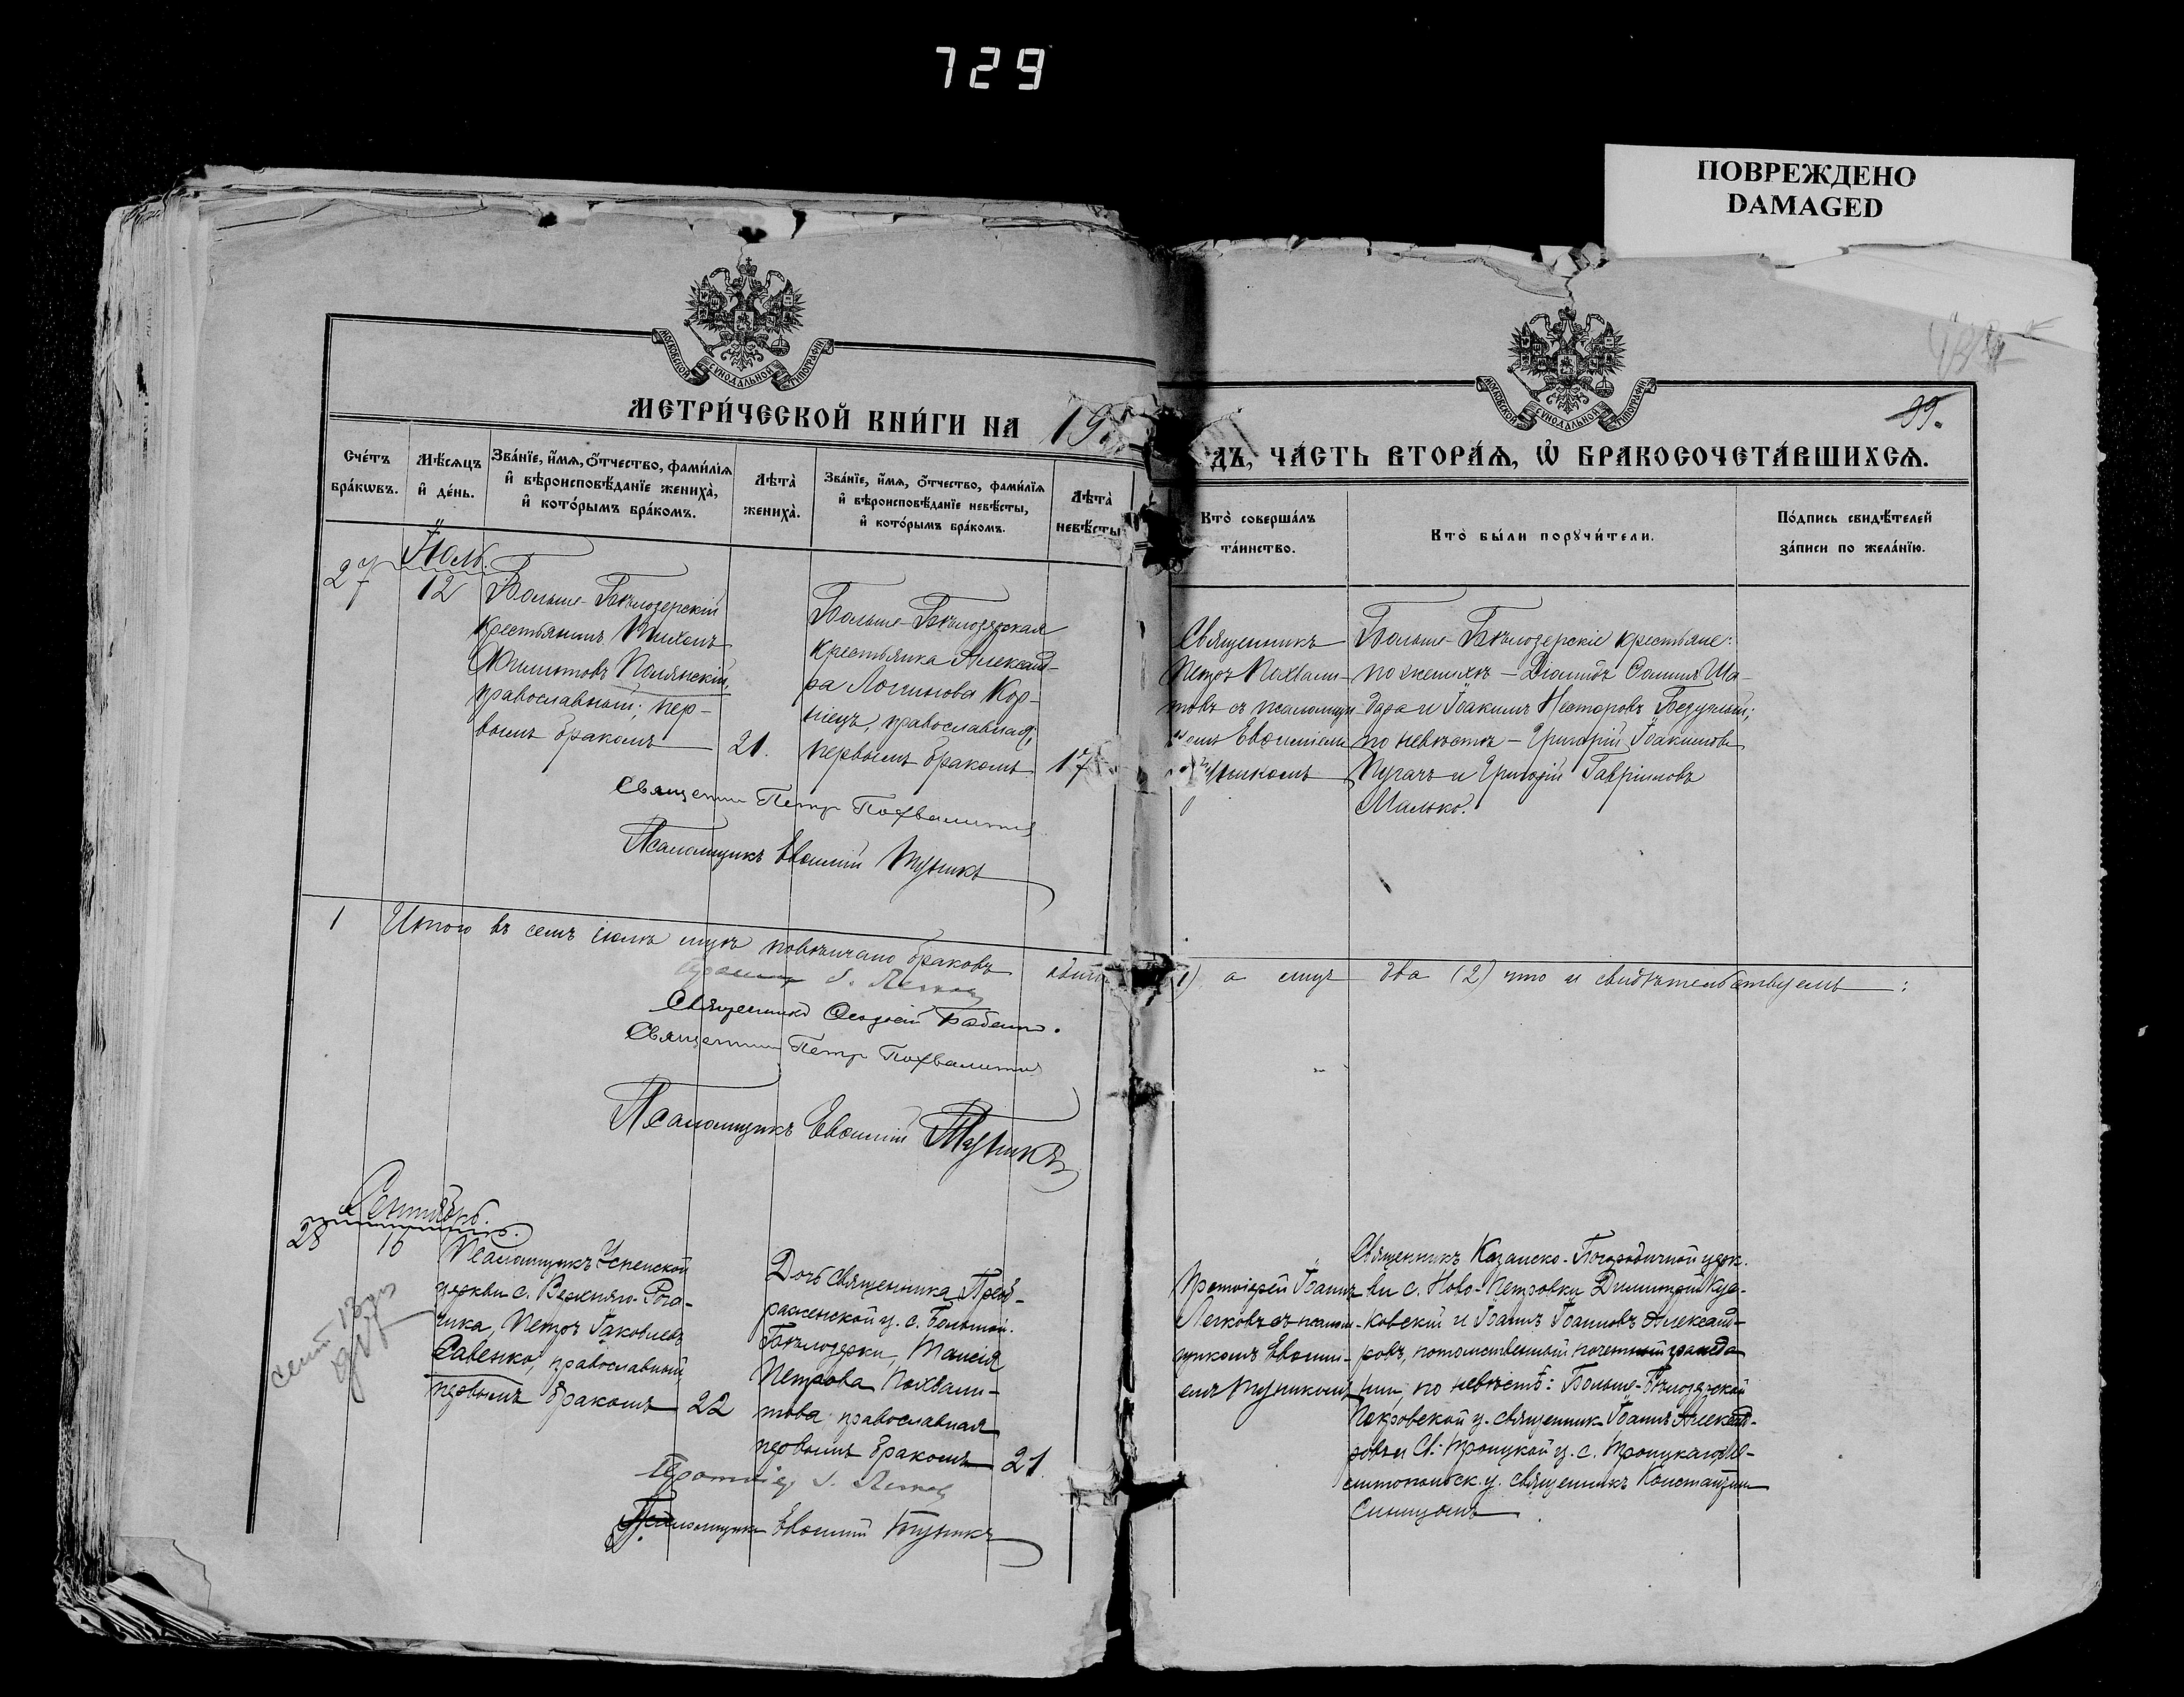 729
ПОВРЕЖДЕНО
DAMAGED
МОСКОВСКОЙ СѴНОДАЛЬНОЙ ТИПОГРАФІИ
МОСКОВСКОЙ СѴНОДАЛЬНОЙ ТИПОГРАФІИ
МЕТРИ́ЧЕСКОЙ КНИ́ГИ НА 19
99.
ДЪ, ЧА́СТЬ ВТОРА́Я, Ѡ҆ БРАКОСОЧЕТА́ВШИХСЯ.
Сче́тъ бра́кѡвъ.
Мѣ́сяцъ и҆ де́нь.
Зва́нїе, и҆́мя, ѻ҆́тчество, фами́лїя
и҆ вѣроисповѣ́данїе жениха̀,
и҆ кото́рымъ бра́комъ.
Лѣта̀ жениха̀.
Зва́нїе, и҆́мя, ѻ҆́тчество, фами́лїя
и҆ вѣроисповѣ́данїе невѣ́сты,
и҆ кото́рымъ бра́комъ.
Лѣта̀ невѣ́сты
Кто̀ соверша́лъ
та́инство.
Кто̀ бы́ли порꙋчи́тели.
По́дпись свидѣ́телей
за́писи по жела́нїю.
27
Іюль.
12
Больше-Бѣлозерскій
крестьянинъ Тихонъ
Филиповъ Полянскій,
православный; пер-
вымъ бракомъ
21.
Больше-Бѣлозерская
крестьянка Александ-
ра Логинова Кор-
ніецъ, православная;
первымъ бракомъ
17
Священникъ
Петръ Похвали-
товъ съ псаломщи-
комъ Евѳиміемъ
Тупикомъ
Больше-Бѣлозерскіе крестьяне:
по женихѣ – Діомидъ Ѳоминъ Ша-
дара и Іоакимъ Несторовъ Бездулый;
по невѣстѣ – Григорій Іоакимовъ
Пугачъ и Григорій Гавріиловъ
Малько.
Священник Петр Похвалитов
Псаломщикъ Евѳимій Тупикъ
1 Итого въ семъ іюлѣ мцѣ повѣнчано браковъ одинъ
1) а лицъ два (2) что и свидѣтельствуемъ:
Протоіер. І. Легков
Священникъ Ѳеодосій Бабенко.
Священник Петр Похвалитов
Псаломщикъ Евѳимій Тупикъ
Сентябрь.
28
16
Псаломщикъ Успенской
церкви с. Верхняго-Рога-
чика, Петръ Іаковлевъ
Савенко, православный
первымъ бракомъ
22
Дочь священника Преоб-
раженской ц. с. Большой-
Бѣлозерки, Таисія
Петрова Похвали-
това православная
первымъ бракомъ
21.
Протоіерей Іоаннъ
Легковъ съ псалом-
щикомъ Евѳимі-
емъ Тупикомъ
Священникъ Казанско-Богородичной церк-
ви с. Ново-Петровки Димитрій Куде-
ковскій и Іоаннъ Іоанновъ Александ-
ровъ, потомственный почетный гражда-
нин, по невѣстѣ: Больше-Бѣлозерской
Покровской ц. священник Іоаннъ Александ-
ровъ и Св. Троицкой ц. с. Троицкаго Ме-
литопольск. у. священникъ Константинъ
Синицынъ
Протоіер. І. Легков
Псаломщикъ Евѳимій Тупикъ